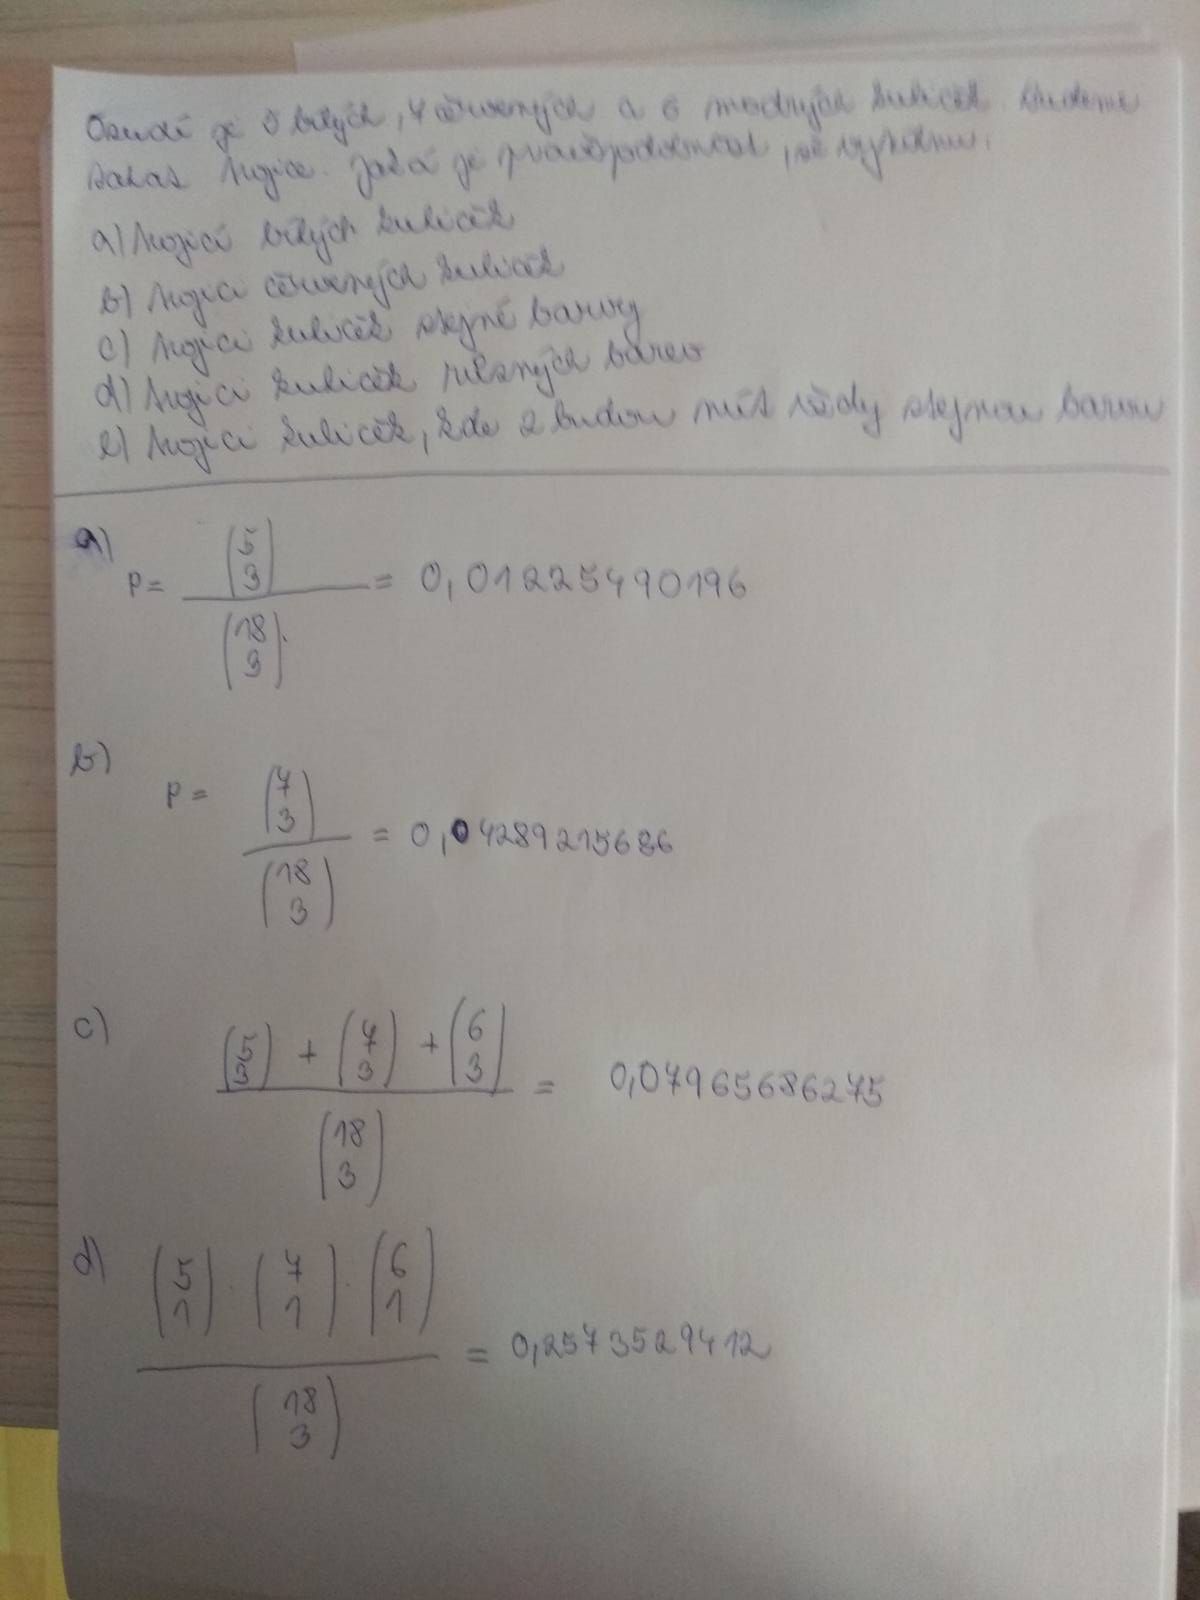 Osudí je 5 bílých, 7 červených a 6 modrých kuliček. Budeme
tahat trojice. Jaká je pravděpodobnost, že vytáhnu:
a) trojici bílých kuliček
b) trojici červených kuliček
c) trojici kuliček stejné barvy
d) trojici kuliček různých barev
e) trojici kuliček, kde 2 budou mít vždy stejnou barvu
a) P = (5 3) / (18 3) = 0,01225490196
b) P = (7 3) / (18 3) = 0,04289215686
c) (5 3) + (7 3) + (6 3) / (18 3) = 0,07965686275
d) (5 1) · (7 1) · (6 1) / (18 3) = 0,2573529412